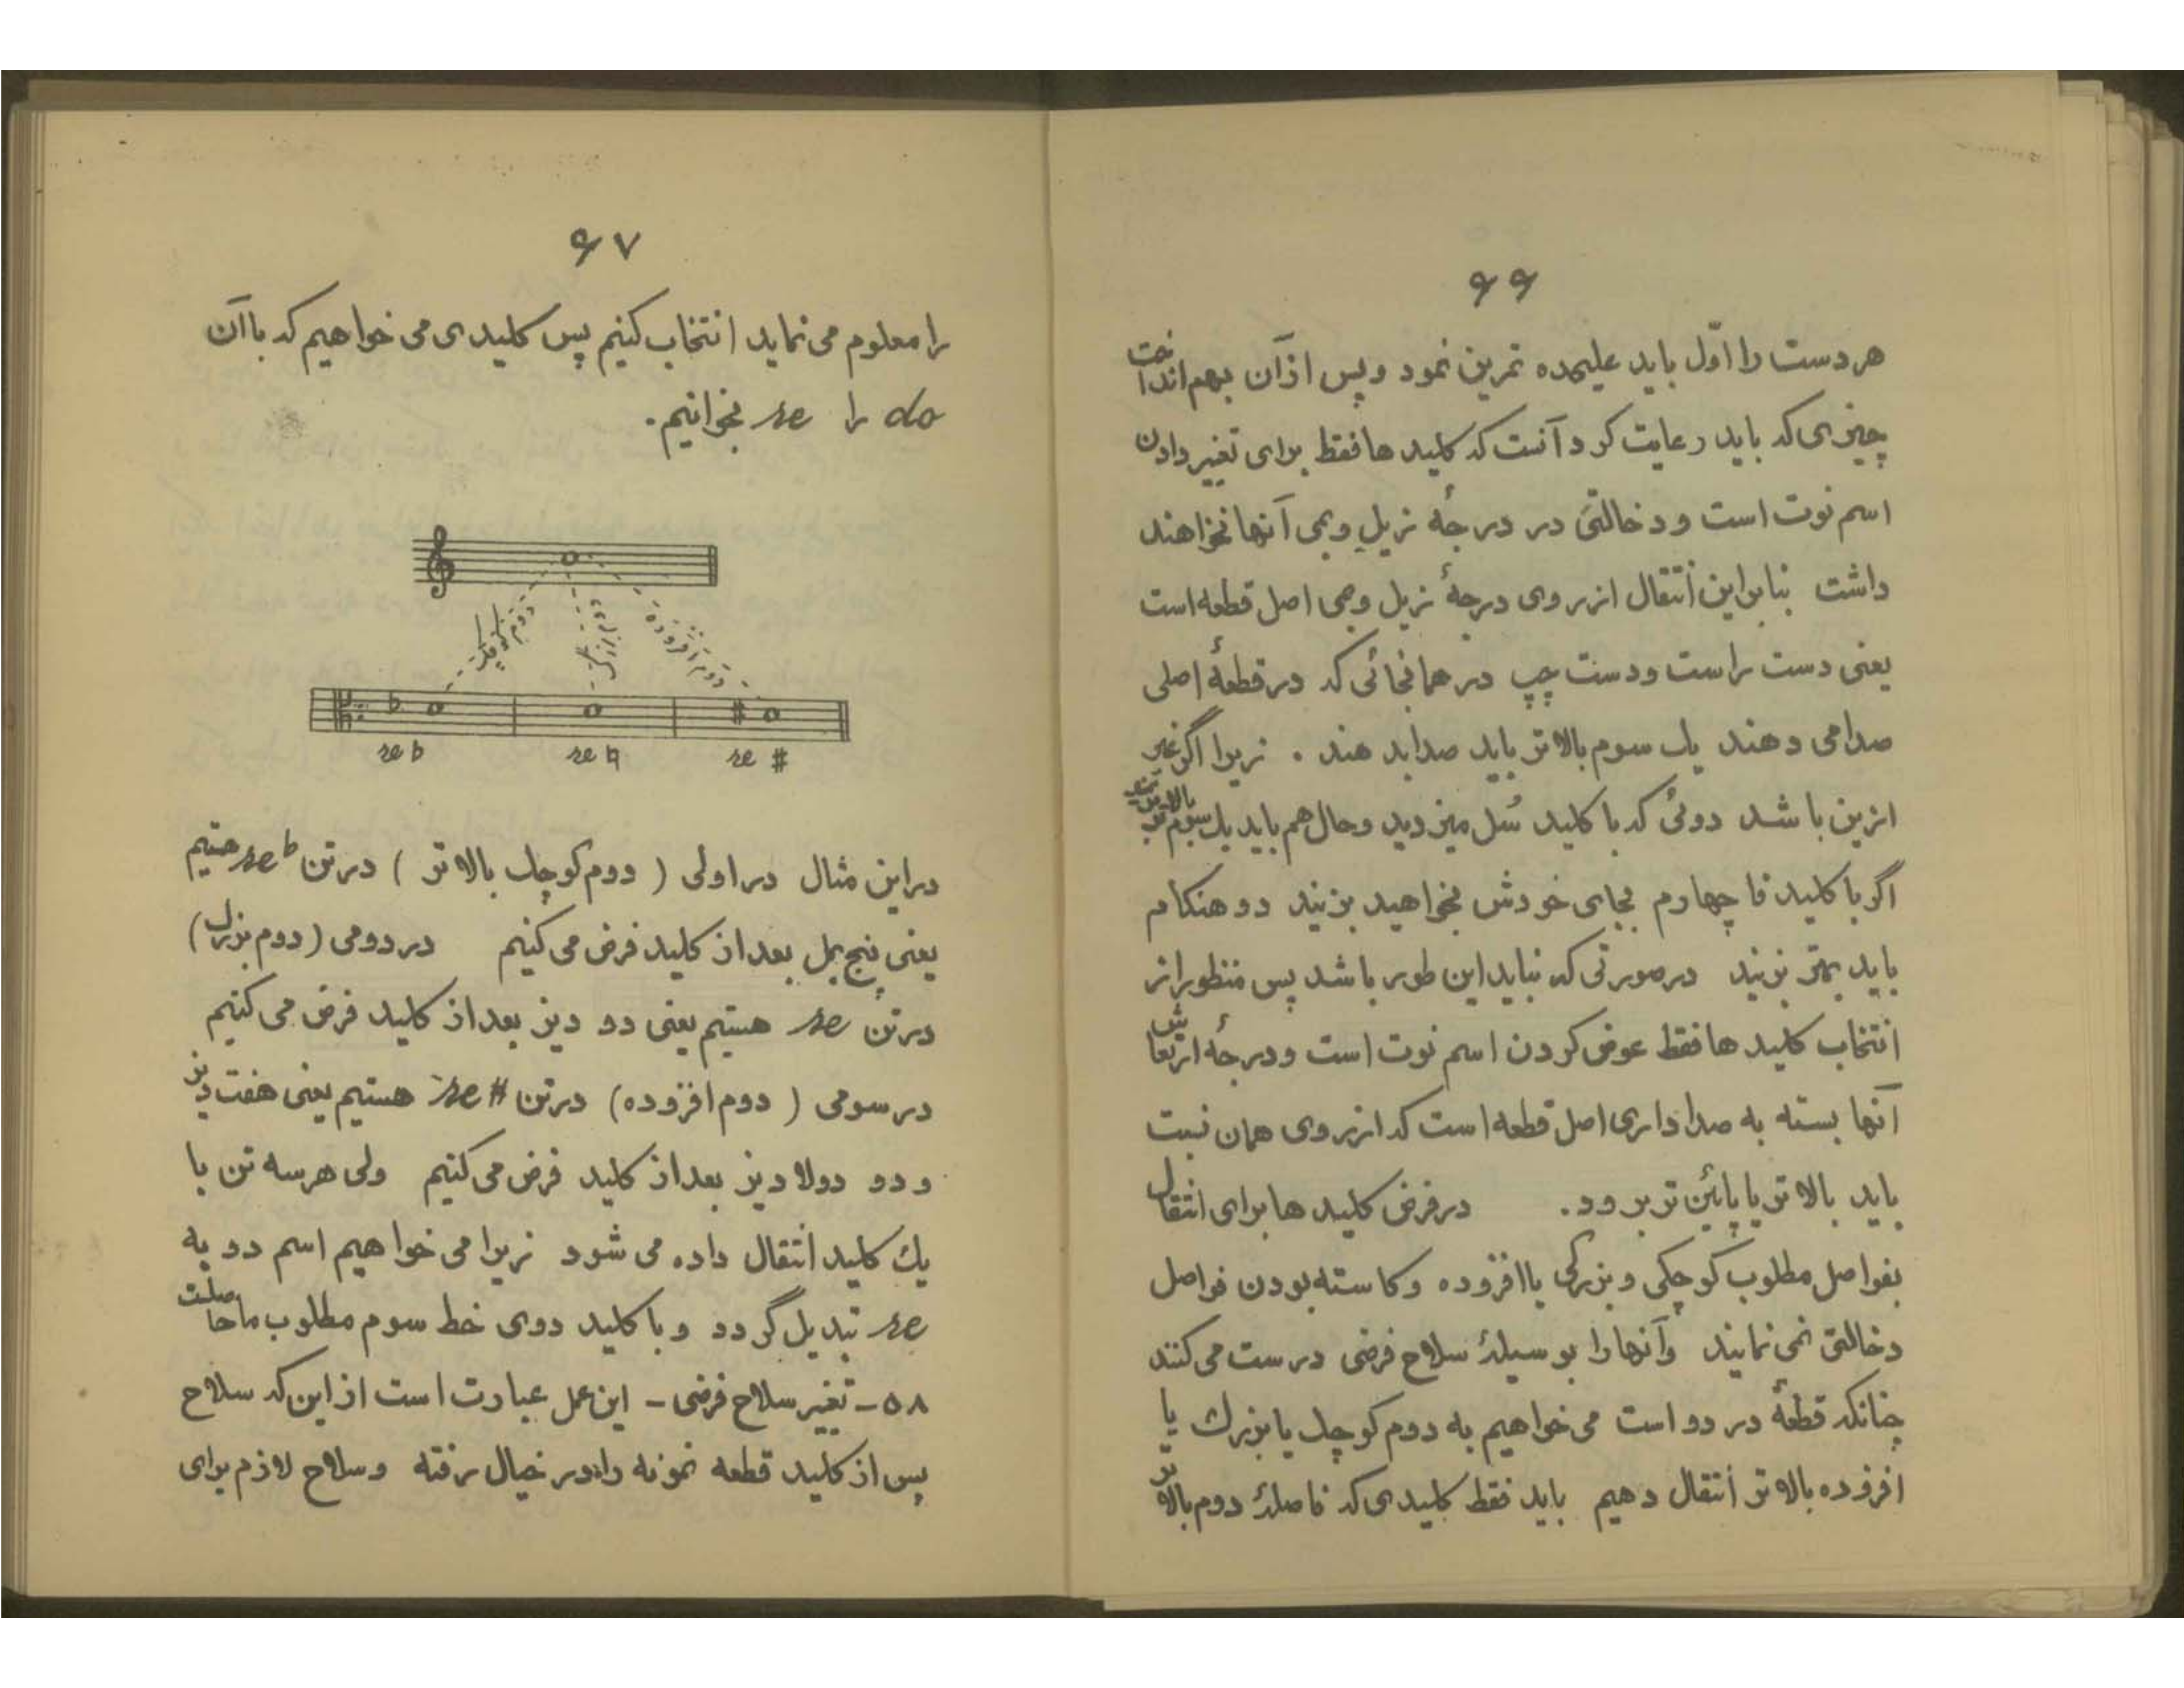 ۶۶
هر دست را اوّل باید علیحده تمرین نمود و پس از آن بهم انداخت
چیزی که باید رعایت کرد آنست که کلید ها فقط برای تغییر دادن
اسم نوت است و دخالتی در درجهٔ زیل و بمی آنها نخواهند
داشت بنابراین انتقال از روی درجهٔ زیل و بمی اصل قطعه است
یعنی دست راست و دست چپ در همانجائی که در قطعهٔ اصلی
صدا می دهند یک سوم بالا تر باید صدا بد هند . زیرا اگر غیر
ازین با شد دوئی که با کلید سُل میزدید و حال هم باید یک سوم بالاتر
اگر با کلید فا چهارم بجای خودش بخواهید بزنید دو هنکام
باید بمتر بزنید در صورتی که نباید این طور باشد پس منظور از
انتخاب کلید ها فقط عوض کردن اسم نوت است و درجهٔ ارتعاش
آنها بسته به صدا داری اصل قطعه است که از روی همان نسبت
باید بالا تر یا پائین تر برود. در فرض کلید ها برای انتقال
بفواصل مطلوب کوچکی و بزرگی یا افزوده و کاسته بودن فواصل
دخالتی نمی نمایند وآنها را بوسیلهٔ سلاح فرضی درست می کنند
چنانکه قطعهٔ در دو است می خواهیم به دوم کوچک یا بزرک یا
افزوده بالا تر انتقال دهیم باید فقط کلیدی که فاصلهٔ دوم بالا تر
۶۷
را معلوم می نماید انتخاب کنیم پس کلیدی می خواهیم که با آن
do را re بخوانیم.
دوم کوچک دوم بزرگ دوم افزوده
re ♭ re ♮ re #
در این مثال در اولی ( دوم کوچک بالا تر ) در تن re ♭ هستیم
یعنی پنج بمل بعد از کلید فرض می کنیم در دومی (دوم بزرک)
در تن re هستیم یعنی دو دیز بعد از کلید فرض می کنیم
در سومی ( دوم افزوده) در تن re # هستیم یعنی هفت دیز
و دو دولا دیز بعد از کلید فرض می کنیم ولی هر سه تن با
یك کلید انتقال داده می شود زیرا می خواهیم اسم دو به
re تبدیل گردد و با کلید دوی خط سوم مطلوب ما حاصلست
۵۸- تغییر سلاح فرضی - این عمل عبارت است از این که سلاح
پس از کلید قطعه نمونه را در خیال رفته و سلاح لازم برای